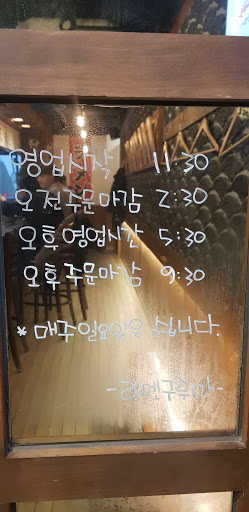 영업시작 11:30
오전주문마감 2:30
오후영업시간 5:30
오후주문마감 9:30
* 매주일요일은 쉽니다.
-라멘구루마-